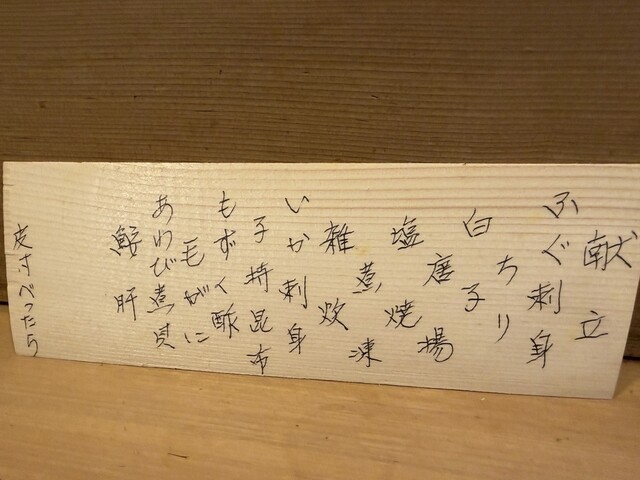 献立
ふぐ刺身
ちり
白子
唐揚
塩焼
煮凍
雑炊
いか刺身
子持昆布
もずく酢
毛がに
あわび煮貝
鮟肝
皮付べったら